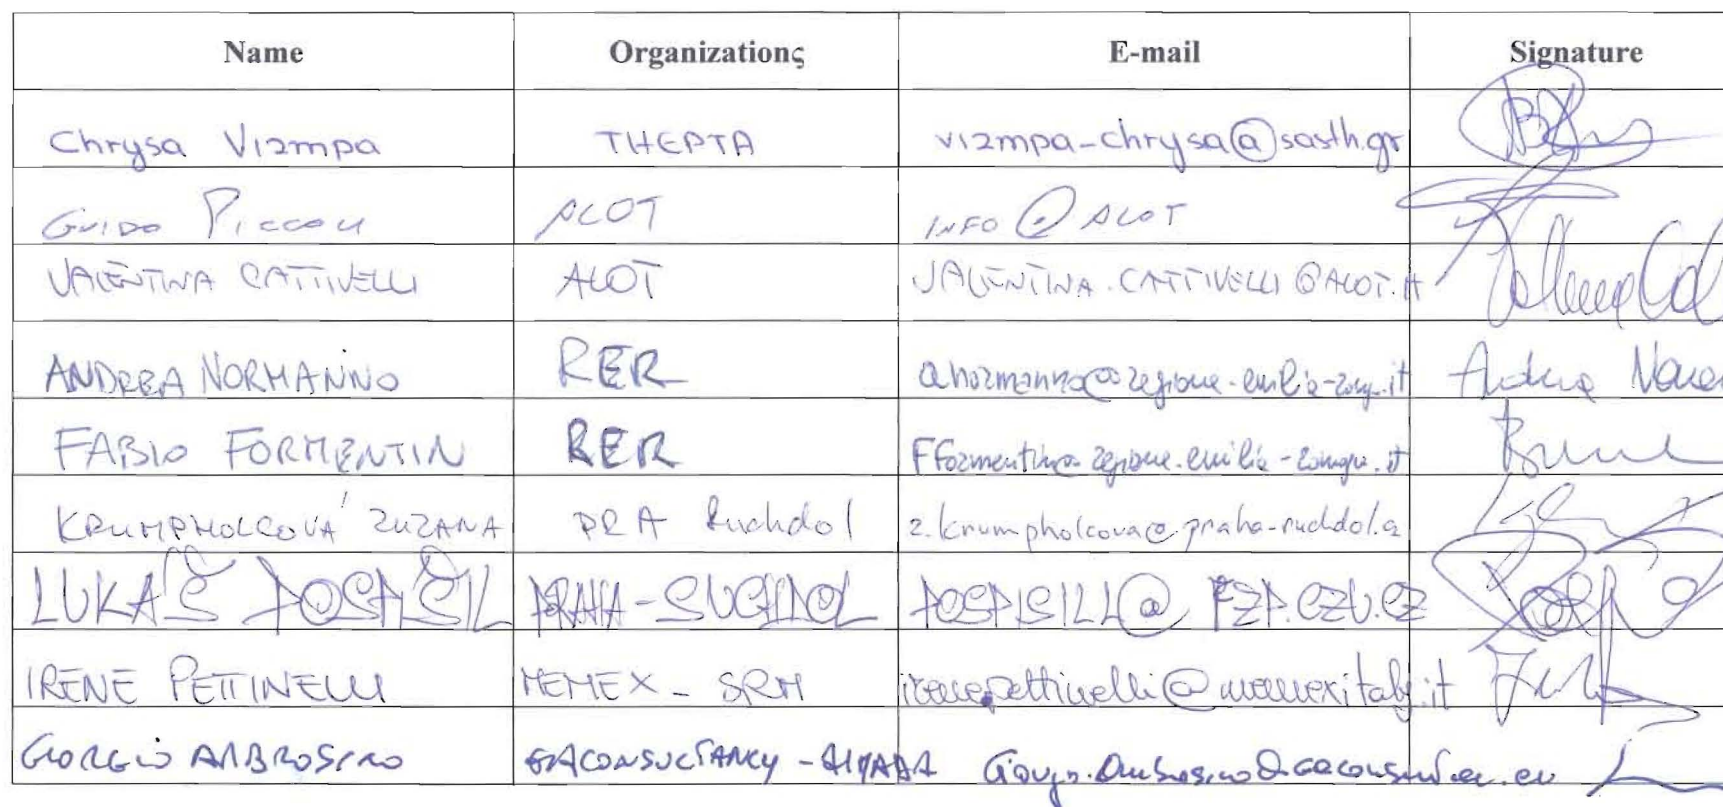 Name Organizationς E-mail Signature
Chrysa Vizmpa THEPTA vizmpa-chrysa@sasth.gr
GUIDO PICCOLI ALOT INFO @ ALOT
VALENTINA CATTIVELLI ALOT VALENTINA.CATTIVELLI@ALOT.it
ANDREA NORMANNO RER anormanno@regione.emilia-romagna.it Andrea
FABIO FORMENTIN RER Fformentin@regione.emilia-romagna.it
KRUMPHOLCOVÁ ZUZANA PRA Suchdol z.krumpholcova@praha-suchdol.cz
LUKÁŠ POSPÍŠIL PRAHA-SUCHDOL POSPISILL@FZP.CZU.CZ
IRENE PETTINELLI MEMEX - SRM irene.pettinelli@memexitaly.it
GIORGIO AMBROSINO